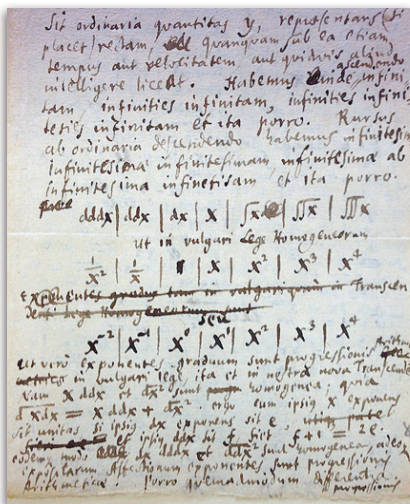 Sit ordinaria quantitas y, repraesentans (si
placet) rectam, quanquam sub ea etiam
tempus aut velocitatem, aut quidvis aliud
intelligere liceat. Habemus inde ascendendo infini
tam, infinities infinitam, infinities infini
ties infinitam et ita porro. Rursus
ab ordinaria descendendo habemus infinitesim
infinitesima infinitesimam, infinitesima ab
infinitesima infinitesimam et ita porro.
dddx | ddx | dx | x | ∫x | ∫∫x | ∫∫∫x
ut in vulgari lege Homogeneorum
1/x² | 1/x | | x | x² | x³ | x⁴
Exponentes gradus tam in vulgari quam in Transcen
denti lege Homogeneorum sunt
seu
x⁻² | x⁻¹ | x⁰ | x¹ | x² | x³ | x⁴
ut vero exponentes graduum sunt progressionis Arithm
in vulgari lege, ita et in nostra nova Transcende
Nam x ddx et dx² sunt homogenea, quia
d x dx = x ddx + dx². ergo cum ipsius x exponens
sit unitas si ipsius dx exponens sit e,
et ipsius ddx sit f, fiet f + 1 = 2e.
eodem modo dx dddx et ddx² sunt homogenea, adeo
exponentes sunt progressionis
Arithmeticae. Porro quemadmodum differentia
progressionis